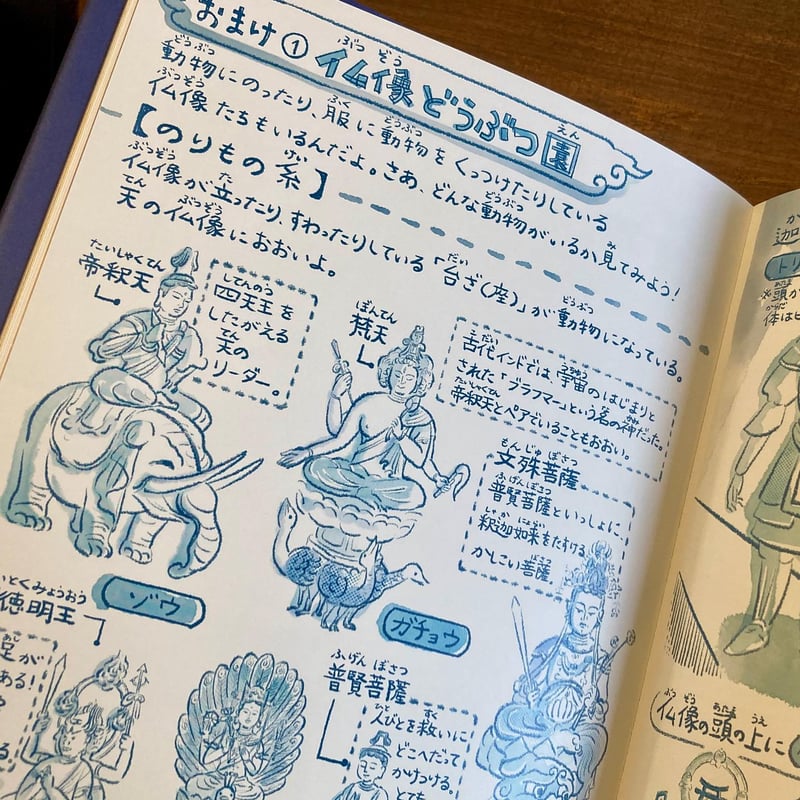 おまけ① 仏像どうぶつ園
動物にのったり、服に動物をくっつけたりしている
仏像たちもいるんだよ。さあ、どんな動物がいるか見てみよう！
【のりもの系】
仏像が立ったり、すわったりしている「台ざ(座)」が動物になっている。
天の仏像におおいよ。
帝釈天
四天王を
したがえる
天の
リーダー。
ゾウ
梵天
古代インドでは、宇宙のはじまりと
された「ブラフマー」という名の神だった。
帝釈天とペアでいることもおおい。
ガチョウ
文殊菩薩
普賢菩薩といっしょに、
釈迦如来をたすける
かしこい菩薩
徳明王
足が
ある！
普賢菩薩
人びとを救いに
どこへだって
かけつける。
とても
仏像の頭の上に